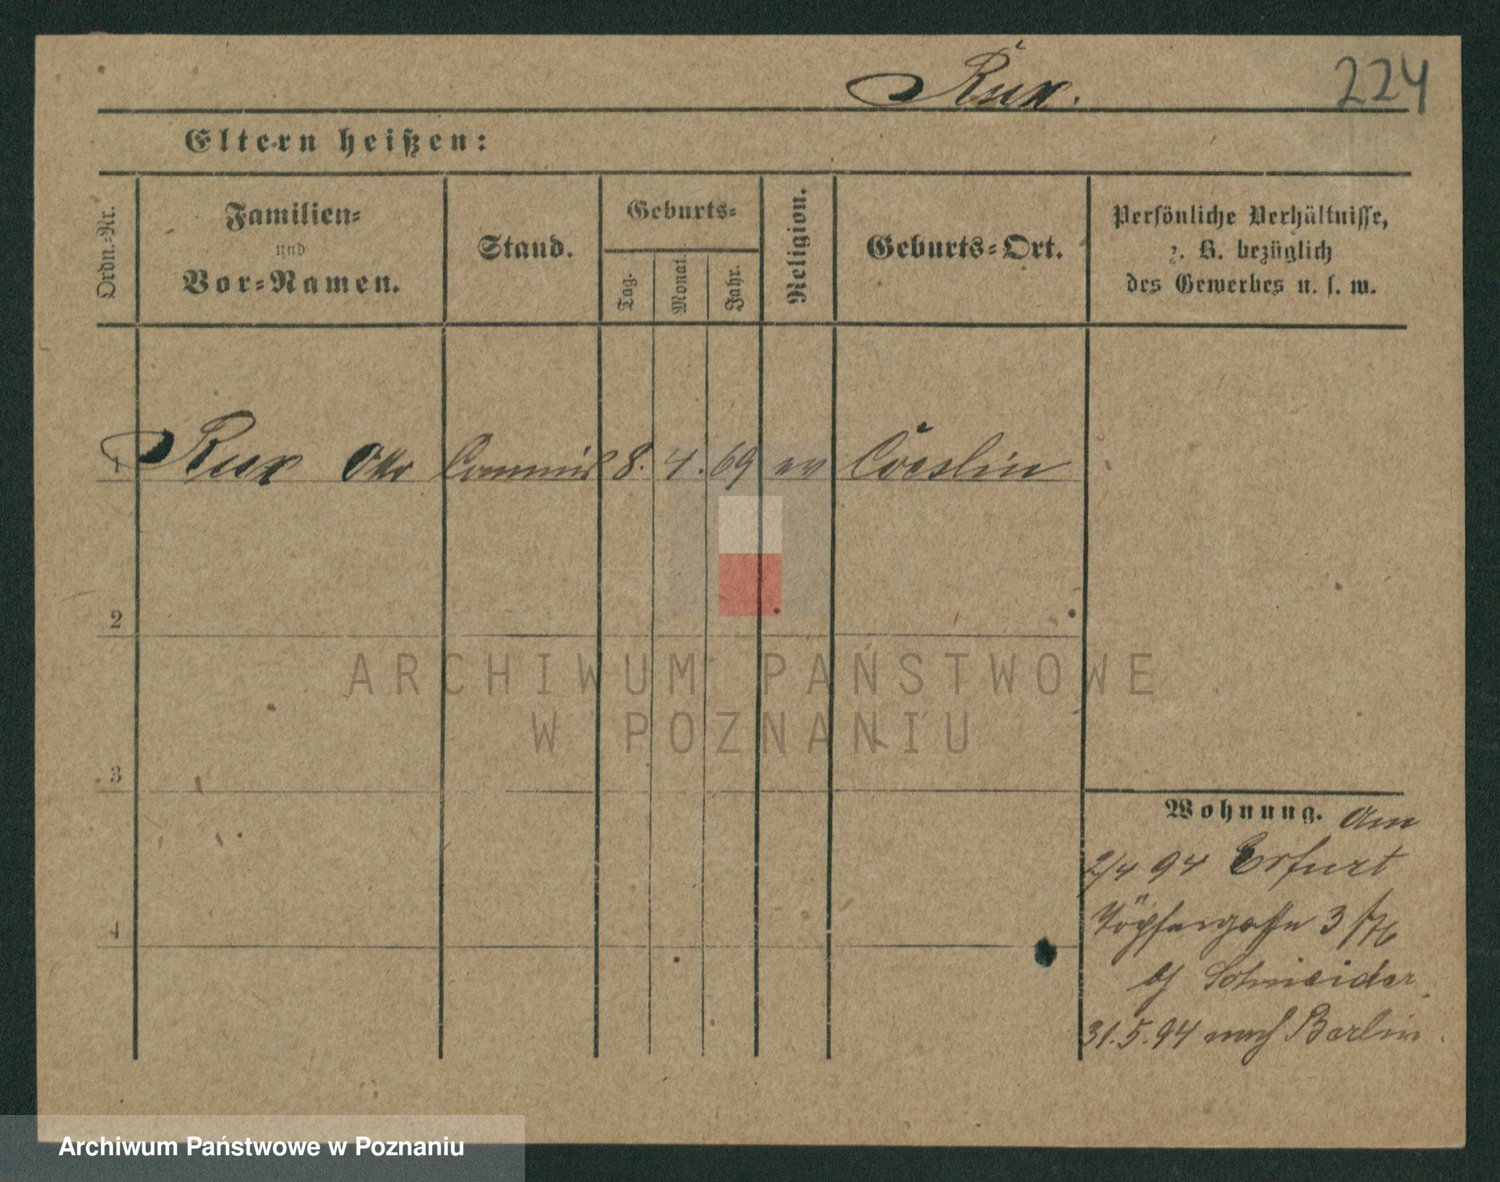 Rux.
224
Eltern heißen:
Ordn.-Nr.
Familien-
und
Vor-Namen.
Stand.
Geburts-
Tag.
Monat.
Jahr.
Religion.
Geburts-Ort.
Persönliche Verhältnisse,
z. B. bezüglich
des Gewerbes u. s. w.
1 Rux Otto Commis 8. 4. 69 ev Cöeslin
2
ARCHIWUM PAŃSTWOWE
W POZNANIU
3
Wohnung. Am
2/4 94 Erfurt
4
Töpfergasse 3
b/ Schneider.
31.5.94 nach Berlin.
Archiwum Państwowe w Poznaniu